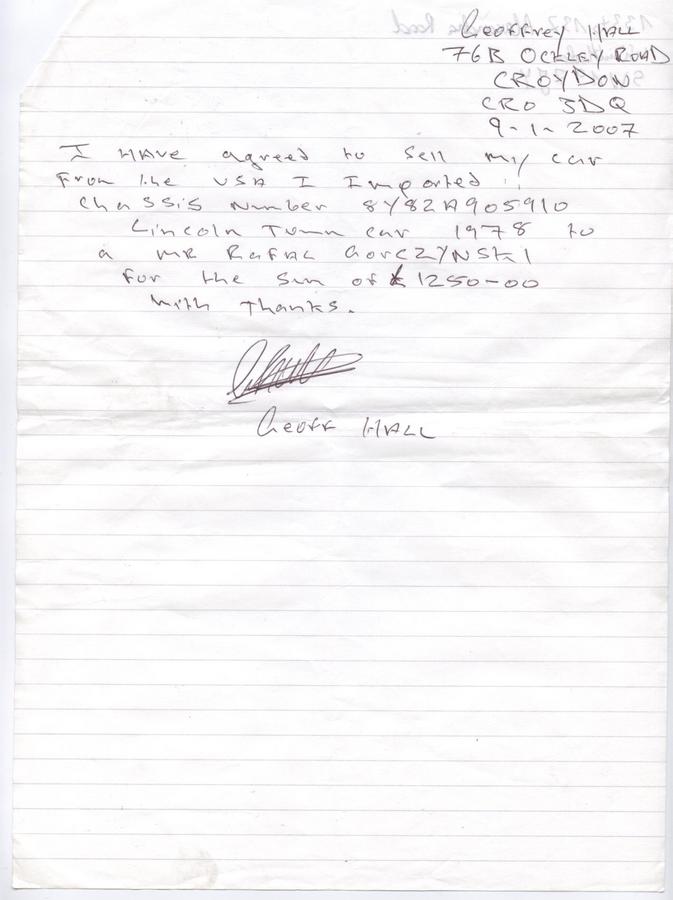 Geoffrey HALL
76B OCKLEY ROAD
CROYDON
CRO 3DQ
9-1-2007
I HAVE agreed to sell my car
From the USA I Imported
Chassis Number 8Y82A905910
Lincoln Town car 1978 to
a MR RAFAL GORCZYNSKI
for the sum of £1250-00
With Thanks.
Geoff HALL